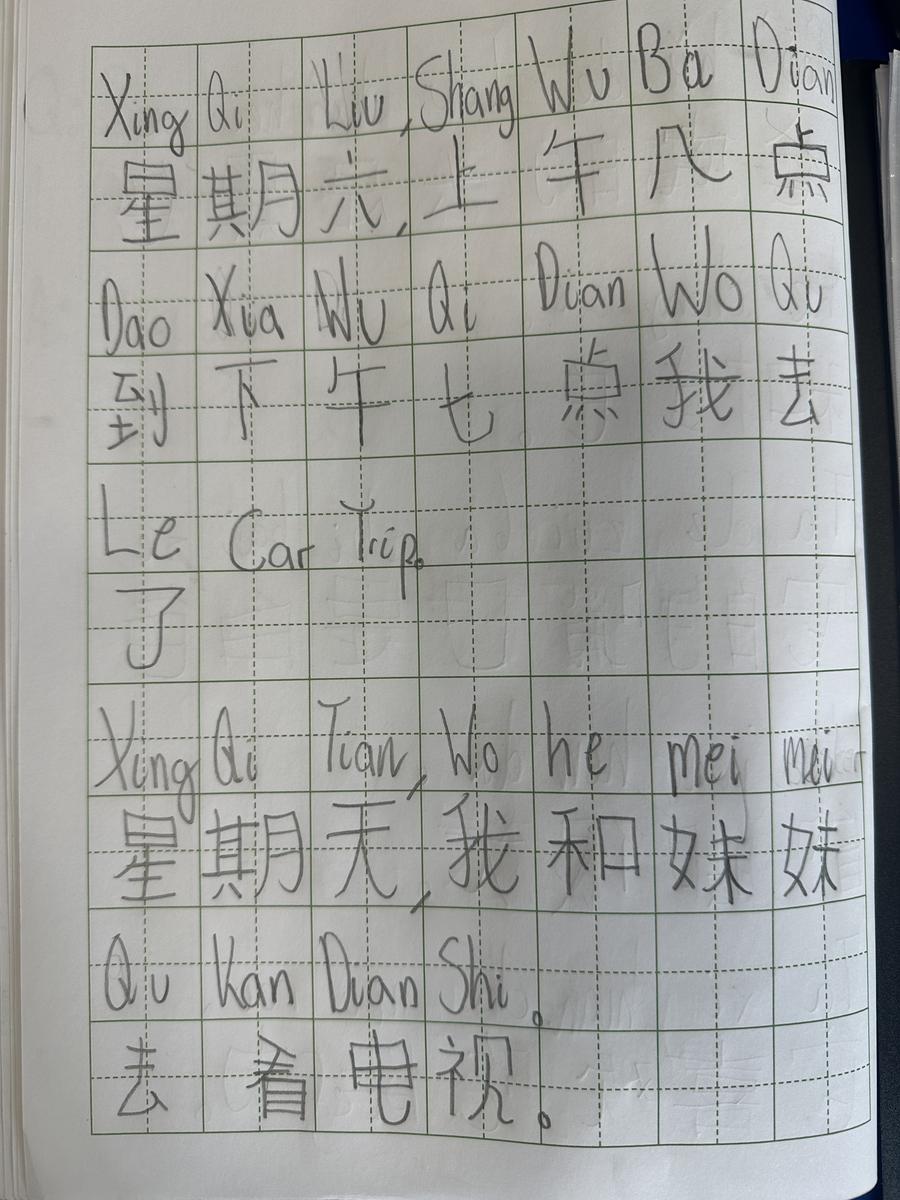 Xing Qi Liu, Shang Wu Ba Dian
星期六,上午八点
Dao Xia Wu Qi Dian Wo Qu
到下午七点我去
Le Car Trip。
了
Xing Qi Tian, Wo he mei mei
星期天,我和妹妹
Qu Kan Dian Shi。
去看电视。